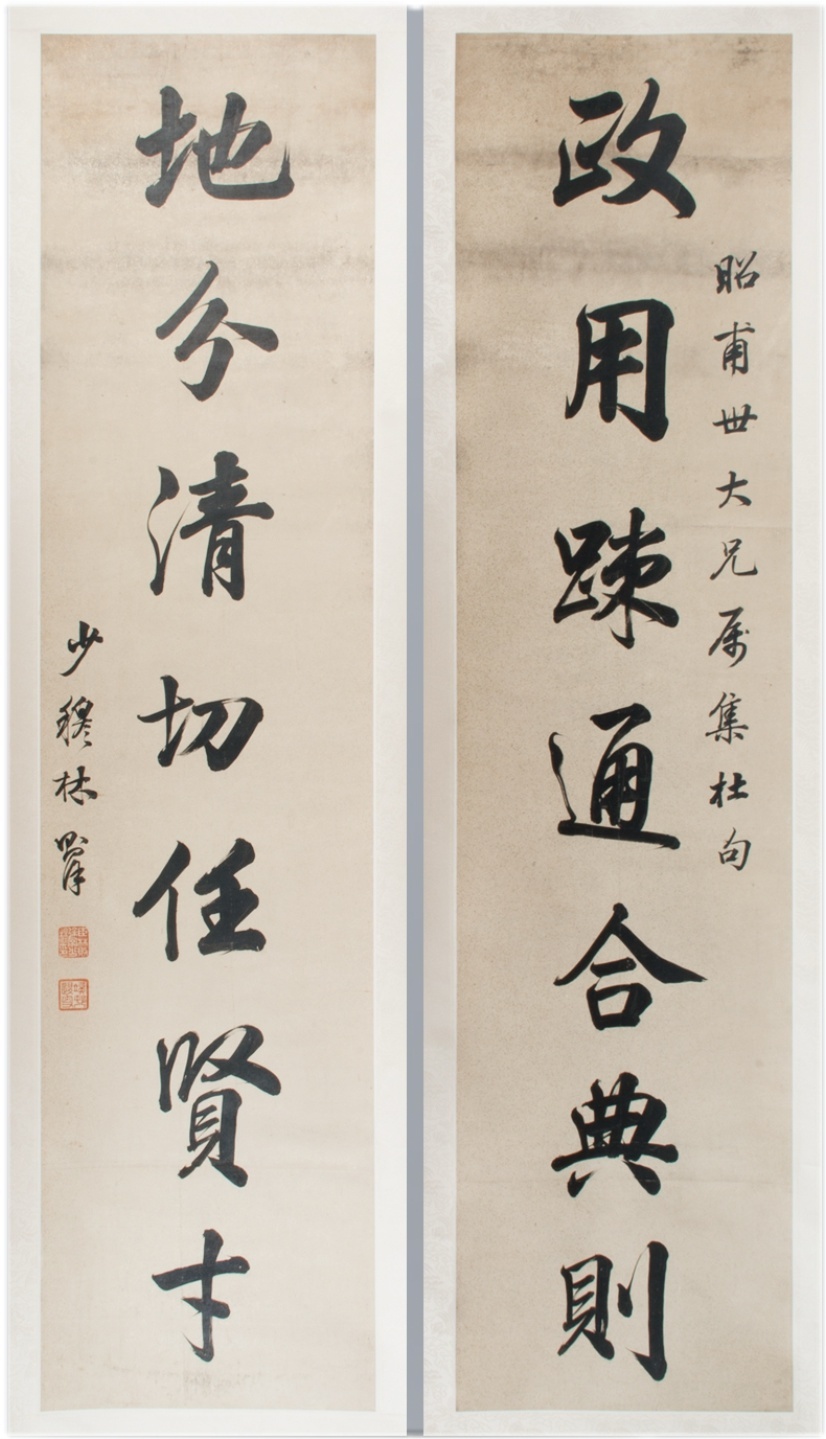 昭甫世大兄属集杜句
政用疎通合典則
地分清切任賢才
少穆林